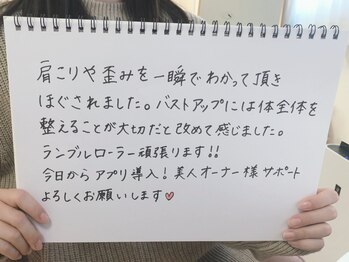 肩こりや歪みを一瞬でわかって頂き
ほぐされました。バストアップには体全体を
整えることが大切だと改めて感じました。
ランブルローラー頑張ります!!
今日からアプリ導入!美人オーナー様サポート
よろしくお願いします♥